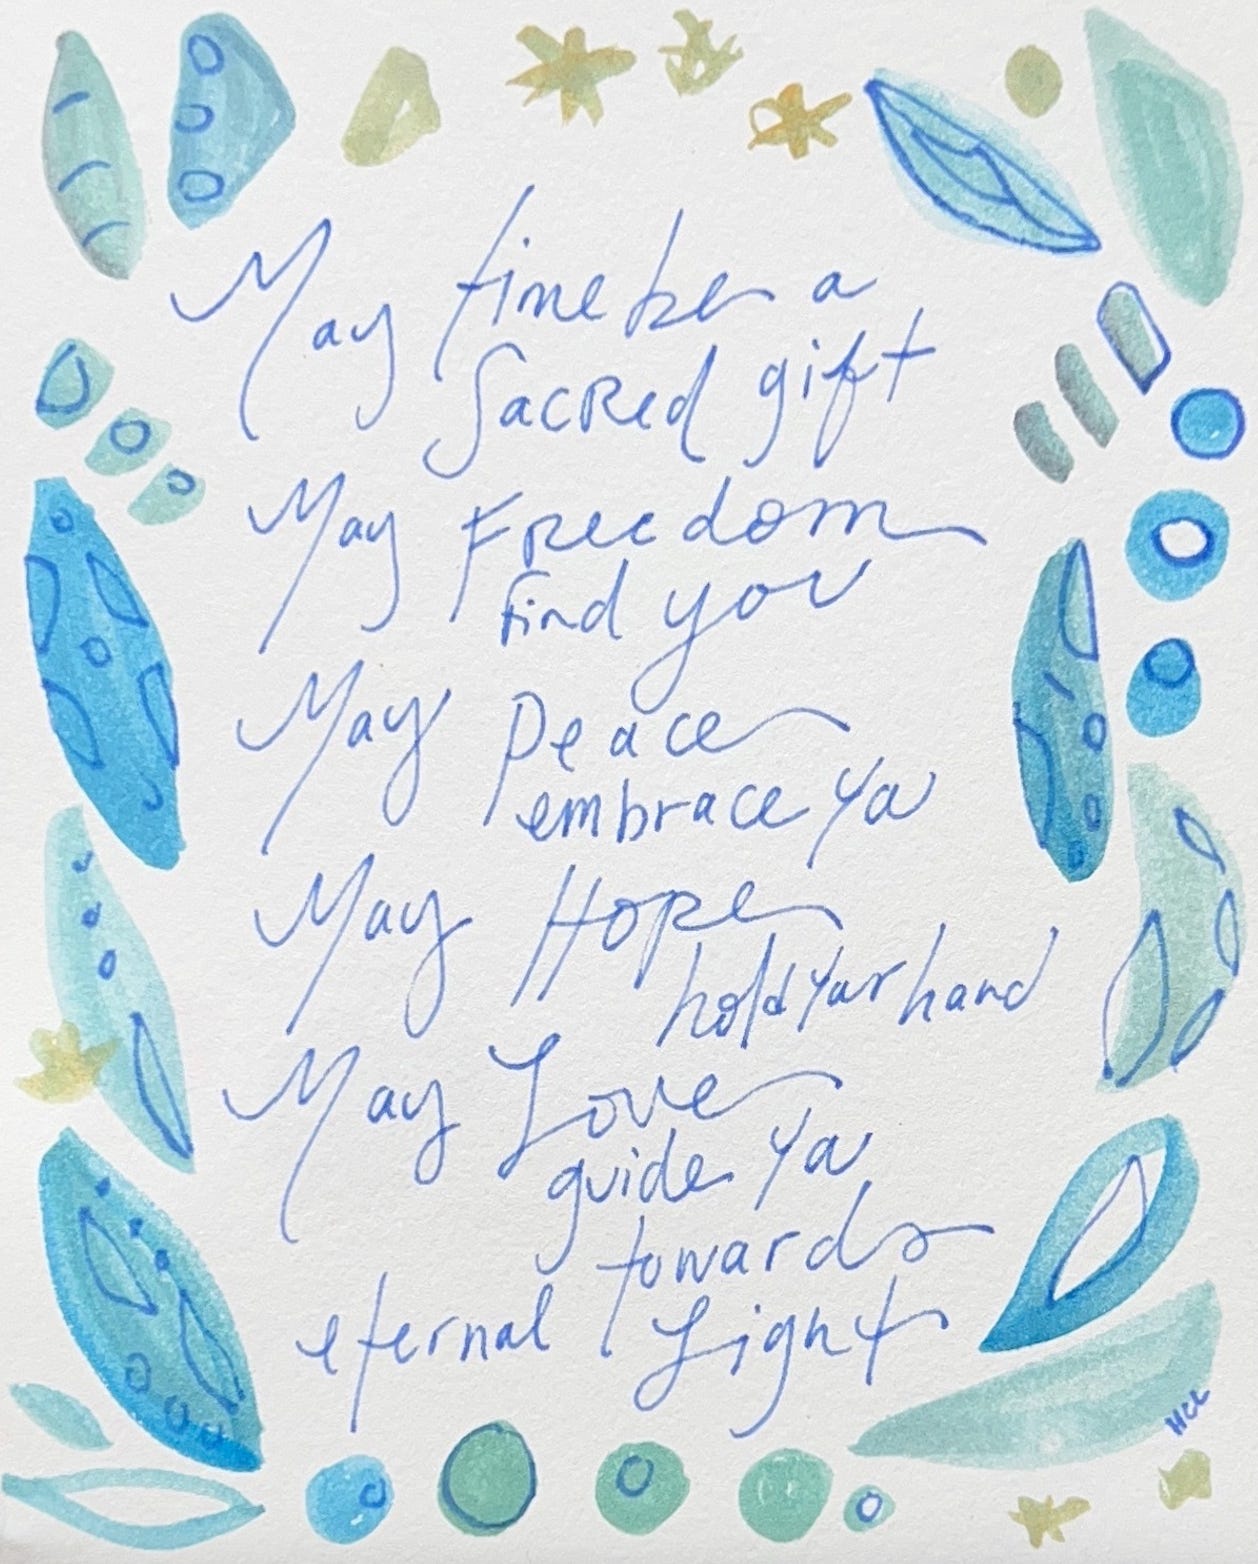 May time be a
Sacred gift
May Freedom
find you
May Peace
embrace ya
May Hope
hold your hand
May Love
guide ya
towards
eternal Light
HCL